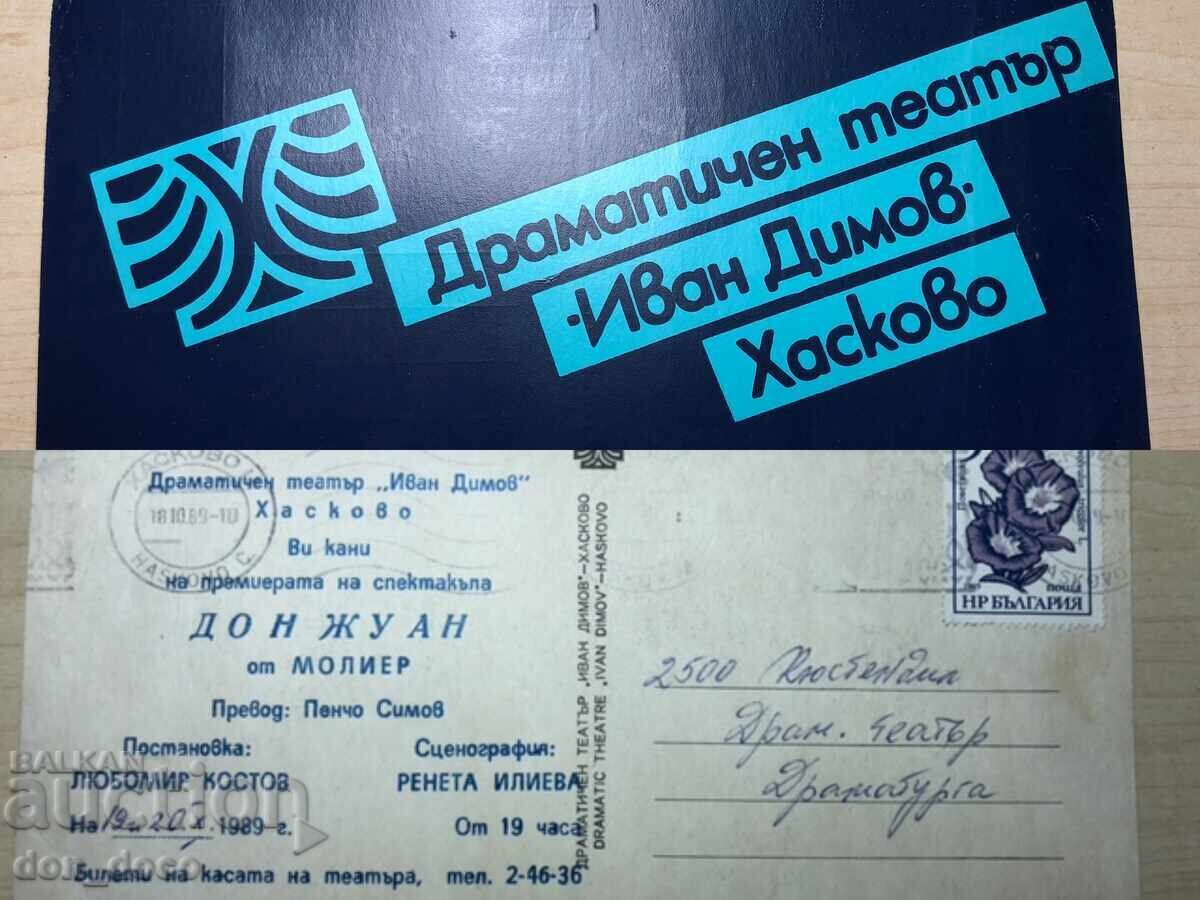 Драматичен театър
·Иван Димов·
Хасково
ХАСКОВО
18.10.89-10
HASKOVO C.
Драматичен театър „Иван Димов"
Хасково
Ви кани
на премиерата на спектакъла
ДОН ЖУАН
от МОЛИЕР
Превод: Пенчо Симов
Постановка:
ЛЮБОМИР КОСТОВ
Сценография:
РЕНЕТА ИЛИЕВА
На 19 и 20.X. 1989 г.
От 19 часа
Билети на касата на театъра, тел. 2-46-36
ДРАМАТИЧЕН ТЕАТЪР „ИВАН ДИМОВ"–ХАСКОВО
DRAMATIC THEATRE „IVAN DIMOV"–HASKOVO
поща
НР БЪЛГАРИЯ
2500 Кюстендил
Драм. театър
Драматурга
BALKAN
auction
don_doco